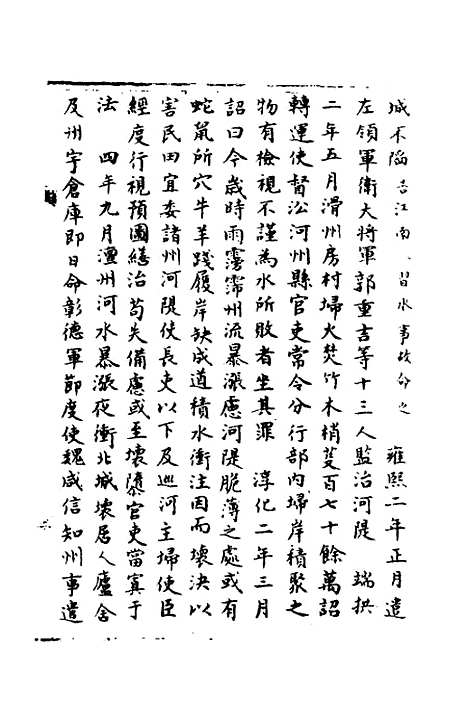 城不陷吉江南 習水事故命之 雍熙二年正月遣
左領軍衛大將軍郭重吉等十三人監治河隄 端拱
二年五月滑州房村埽火焚竹木梢芟百七十餘萬詔
轉運使督沿河州縣官吏常令分行部內埽岸積聚之
物有檢視不謹為水所敗者坐其罪 淳化二年三月
詔曰今歲時雨霶霈州流暴漲慮河隄脆薄之處或有
蛇鼠所穴牛羊踐履岸缺成道積水衝注因而壞決以
害民田宜委諸州河隄使長吏以下及巡河主埽使臣
經度行視預圖繕治苟失備慮或至壞隳官吏當寘于
法 四年九月澶州河水暴漲夜衝北城壞居人廬舍
及州宇倉庫即日命彰德軍節度使魏咸信知州事遣